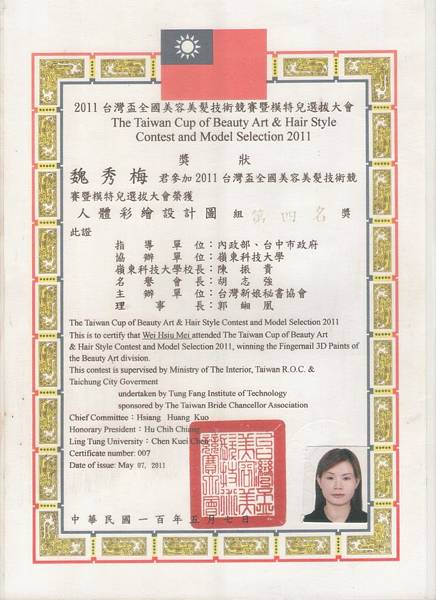 2011 台灣盃全國美容美髮技術競賽暨模特兒選拔大會
The Taiwan Cup of Beauty Art & Hair Style
Contest and Model Selection 2011
獎 狀
魏秀梅 君參加 2011 台灣盃全國美容美髮技術競
賽暨模特兒選拔大會榮獲
人體彩繪設計圖 組 第四名 獎
此證
指導單位：內政部、台中市政府
協辦單位：嶺東科技大學
嶺東科技大學校長：陳振貴
名譽會長：胡志強
主辦單位：台灣新娘秘書協會
理事長：郭緗凰
The Taiwan Cup of Beauty Art & Hair Style Contest and Model Selection 2011
This is to certify that Wei Hsiu Mei attended The Taiwan Cup of Beauty Art
& Hair Style Contest and Model Selection 2011, winning the Fingernail 3D Paints of
the Beauty Art division.
This contest is supervised by Ministry of The Interior, Taiwan R.O.C. &
Taichung City Goverment
undertaken by Tung Fang Institute of Technology
sponsored by The Taiwan Bride Chancellor Association
Chief Committee : Hsiang Huang Kuo
Honorary President : Hu Chih Chiang
Ling Tung University : Chen Kuei Chen
Certificate number: 007
Date of issue: May 07, 2011
中華民國一百年五月七日